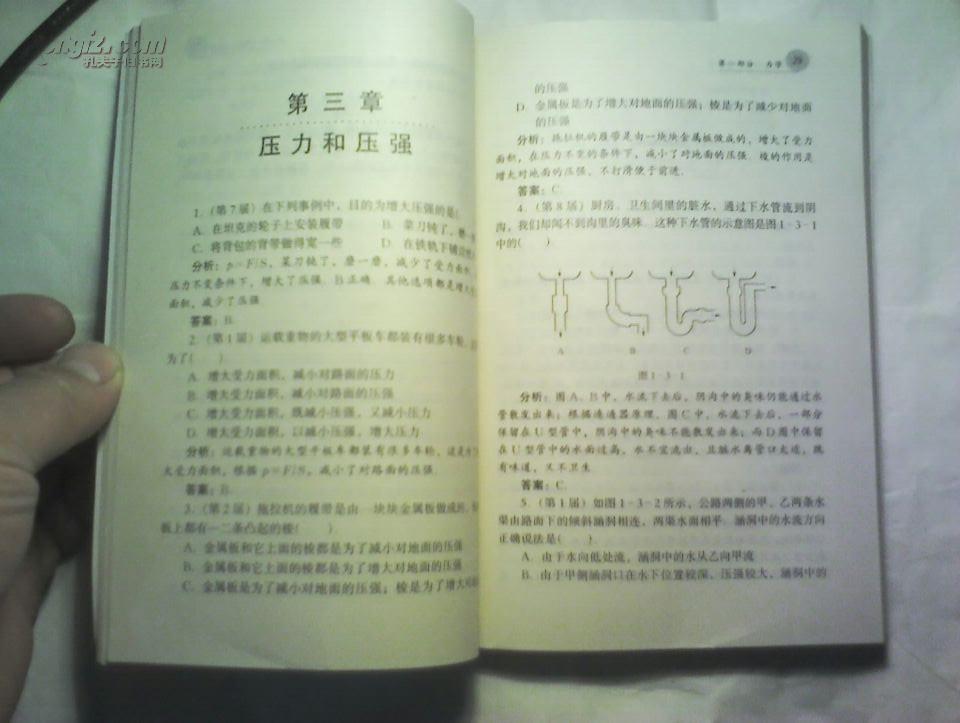 孔夫子旧书网
第三章
压力和压强
1.（第7届）在下列事例中，目的为增大压强的是(
A. 在坦克的轮子上安装履带 B. 菜刀钝了，磨一
C. 将背包的背带做得宽一些 D. 在铁轨下铺
分析：p=F/S，菜刀钝了，磨一磨，减少了受力面积，
压力不变条件下，增大了压强. B正确. 其他选项都是增大
面积，减少了压强.
答案：B.
2.（第1届）运载重物的大型平板车都装有很多车轮，
为了( )
A. 增大受力面积，减小对路面的压力
B. 增大受力面积，减小对路面的压强
C. 增大受力面积，既减小压强，又减小压力
D. 增大受力面积，以减小压强，增大压力
分析：运载重物的大型平板车都装有很多车轮，这是为
大受力面积，根据 p=F/S，减小了对路面的压强.
答案：B.
3.（第2届）拖拉机的履带是由一块块金属板做成的，
板上都有一二条凸起的棱( )
A. 金属板和它上面的棱都是为了减小对地面的压强
B. 金属板和它上面的棱都是为了增大对地面的压强
C. 金属板是为了减小对地面的压强；棱是为了增大对
第一部分 力学 29
的压强
D. 金属板是为了增大对地面的压强；棱是为了减少对地面
的压强
分析：拖拉机的履带是由一块块金属板做成的，增大了受力
面积，在压力不变的条件下，减小了对地面的压强. 棱的作用是
增大对地面的压强，不打滑便于前进.
答案：C.
4.（第8届）厨房、卫生间里的脏水，通过下水管流到阴
沟，我们却闻不到沟里的臭味. 这种下水管的示意图是图1-3-1
中的( )
A B C D
图1-3-1
分析：图A、B中，水流下去后，阴沟中的臭味仍能通过水
管散发出来；根据连通器原理，图C中，水流下去后，一部分
保留在U型管中，阴沟中的臭味不能散发出来；而D图中保留
在U型管中的水面过高，水不宜流出，且脏水离管口太近，既
有味道，又不卫生.
答案：C.
5.（第1届）如图1-3-2所示，公路两侧的甲、乙两条水
渠由路面下的倾斜涵洞相连，两渠水面相平. 涵洞中的水流方向
正确说法是( )
A. 由于水向低处流，涵洞中的水从乙向甲流
B. 由于甲侧涵洞口在水下位置较深、压强较大，涵洞中的